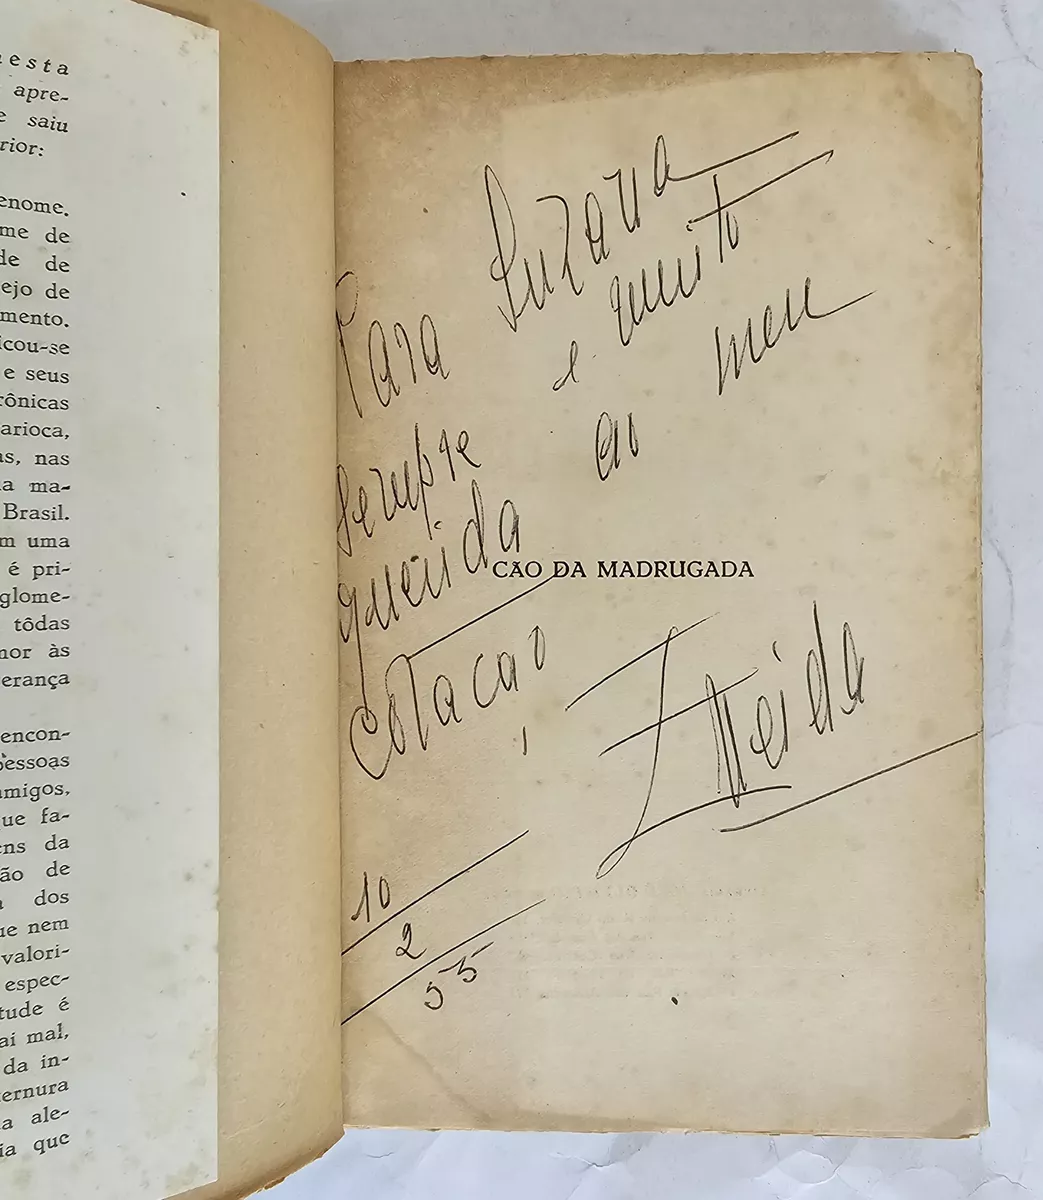 nesta
apre-
e saiu
rior:
enome.
me de
de de
ejo de
mento.
icou-se
e seus
rônicas
arioca,
as, nas
a ma-
Brasil.
m uma
é pri-
glome-
tôdas
nor às
erança
encon-
pessoas
amigos,
ue fa-
ens da
ão de
a dos
ue nem
valori-
espec-
tude é
ai mal,
da in-
ernura
a ale-
ia que
Para Suzana
sempre e muito
querida ao meu
coração,
CÃO DA MADRUGADA
Eneida
10
2
55